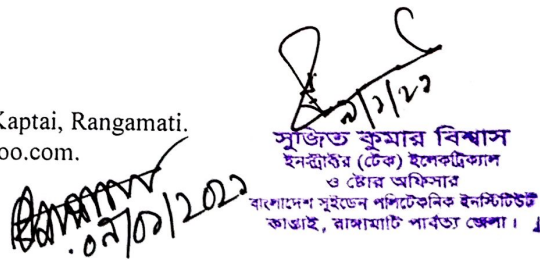 Kaptai, Rangamati.
oo.com.
০৯/০১/২০২২
৯/১/২২
সুজিত কুমার বিশ্বাস
ইনস্ট্রাক্টর (টেক) ইলেকট্রিক্যাল
ও ষ্টোর অফিসার
বাংলাদেশ সুইডেন পলিটেকনিক ইনস্টিটিউট
কাপ্তাই, রাঙ্গামাটি পার্বত্য জেলা।